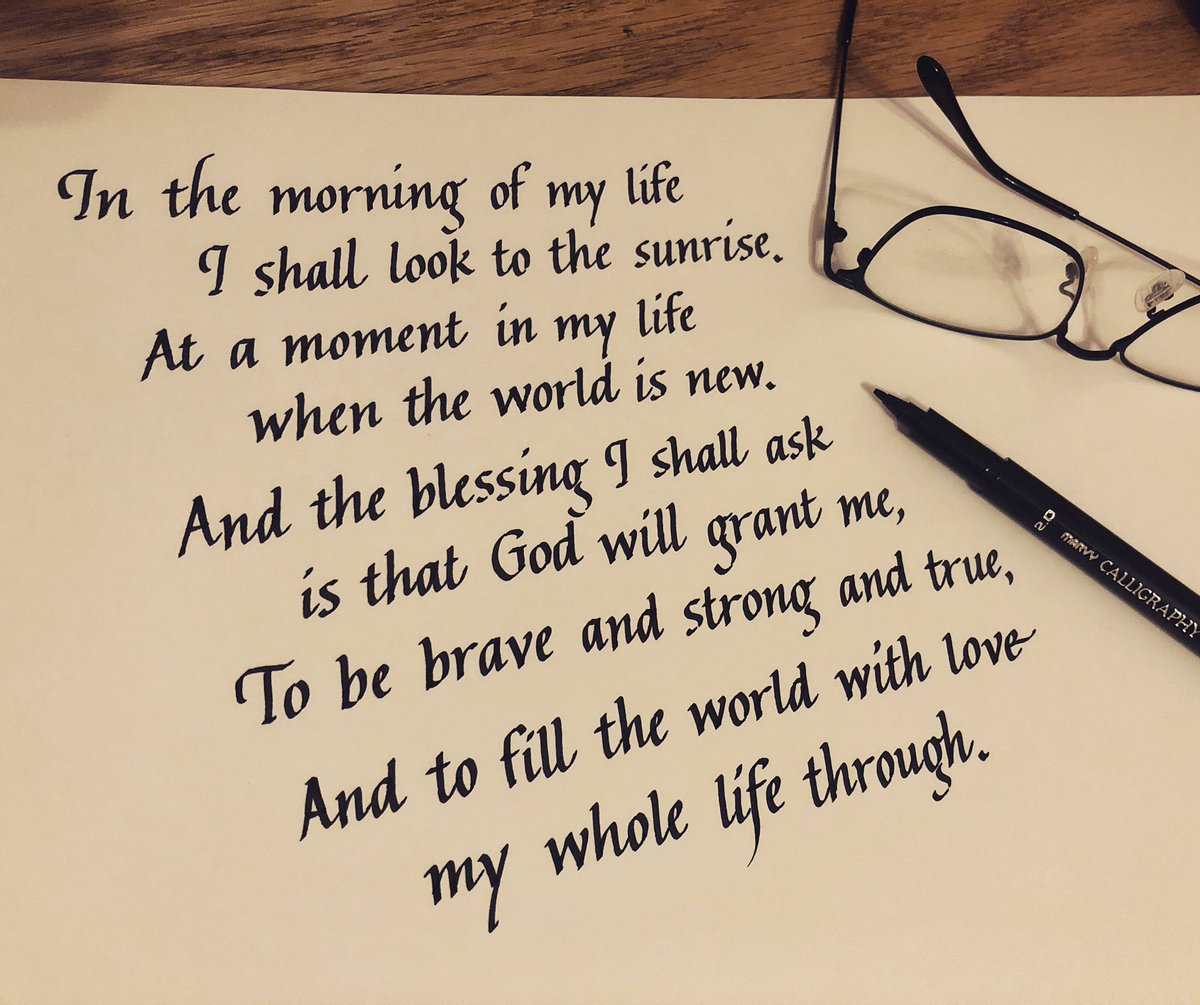 In the morning of my life
I shall look to the sunrise.
At a moment in my life
when the world is new.
And the blessing I shall ask
is that God will grant me,
To be brave and strong and true,
And to fill the world with love
my whole life through.
2.0 marvy CALLIGRAPHY